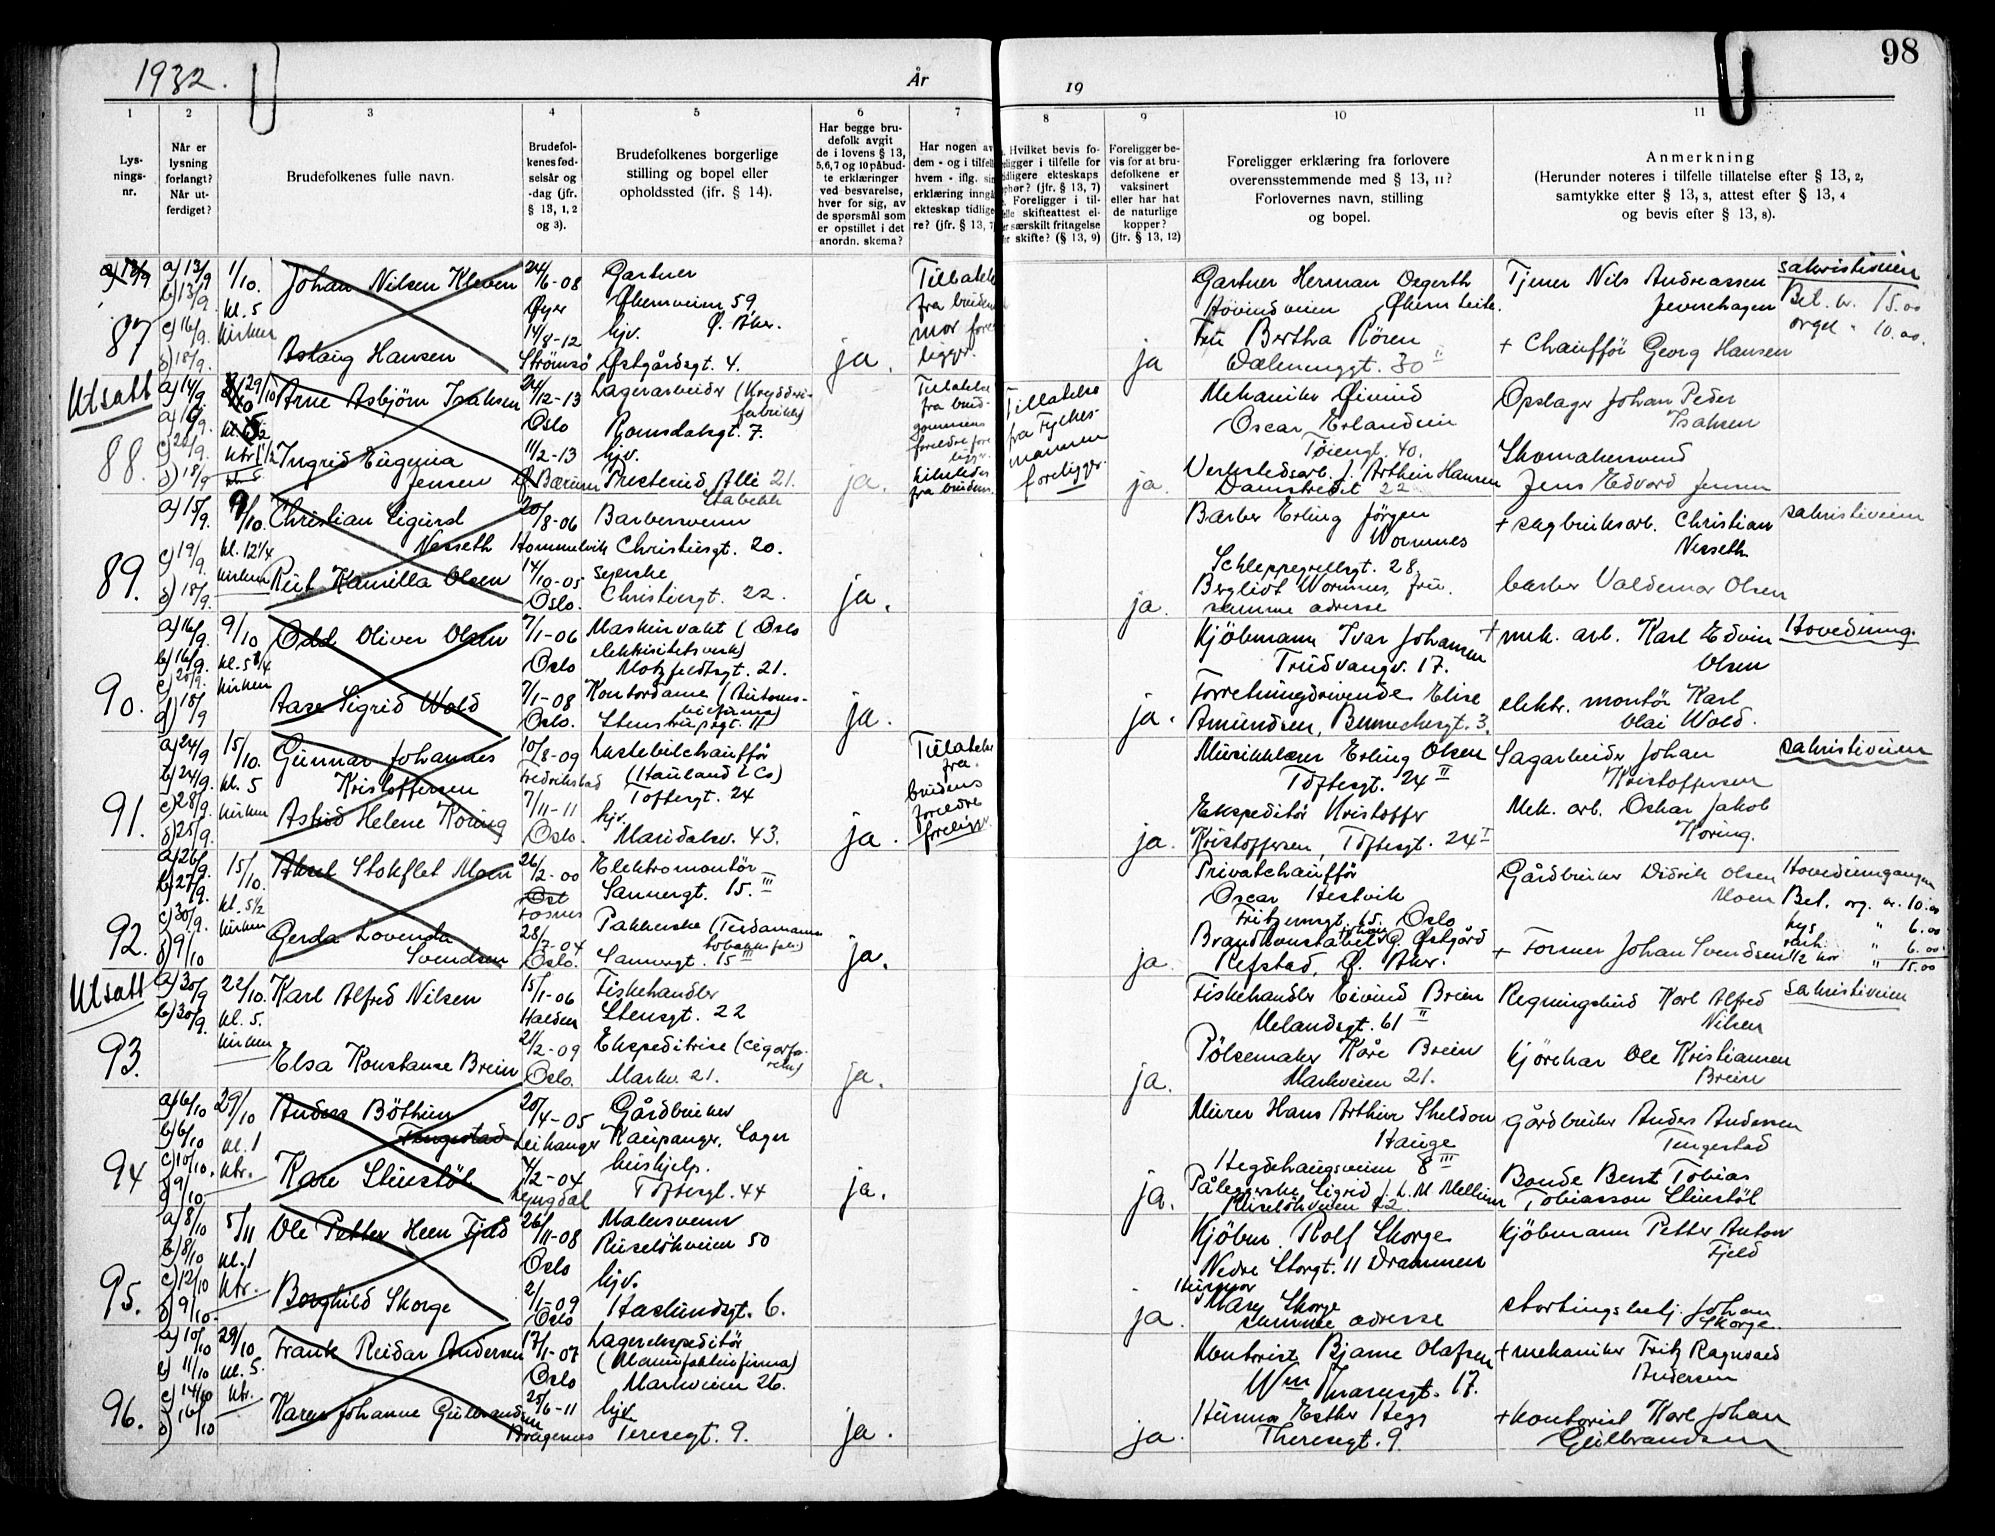 1932.
År
19
98
1
2
3
4
5
6
7
8
9
10
11
Lys-
nings-
nr.
Når er
lysning
forlangt?
Når ut-
ferdiget?
Brudefolkenes fulle navn.
Brudefol-
kenes fød-
selsår og
-dag (jfr.
§ 13, 1, 2
og 3).
Brudefolkenes borgerlige
stilling og bopel eller
opholdssted (ifr. § 14).
Har begge bru-
defolk avgit
de i lovens § 13,
5,6,7 og 10 påbud-
te erklæringer
ved besvarelse,
hver for sig, av
de spørsmål som
er opstillet i det
anordn. skema?
Har nogen av
dem - og i tilfelle
hvem - iflg. sin
erklæring inngå
ekteskap tidlige
re? (jfr. § 13, 7
Hvilket bevis fo-
religger i tilfelle for
tidligere ekteskaps
ophør? (jfr. § 13, 7)
Foreligger i til-
felle skifteattest el-
ler særskilt fritagelse
for skifte? (§ 13, 9)
Foreligger be-
vis for at bru-
defolkene er
vaksinert
eller har hat
de naturlige
kopper?
(jfr. § 13, 12)
Foreligger erklæring fra forlovere
overensstemmende med § 13, 11?
Forlovernes navn, stilling
og bopel.
Anmerkning
(Herunder noteres i tilfelle tillatelse efter § 13, 2,
samtykke efter § 13, 3, attest efter § 13, 4
og bevis efter § 13, 8).
87
a) 13/9
b) 13/9.
c) 16/9.
d) 18/9.
1/10.
kl. 5
kirken
Johan Nilsen Kleven
Aslaug Hansen
24/6-08
Øyer
14/8-12
Strømsö
Gartner
Økernveien 59,
Ø. Aker.
hjv.
Østgårdsgt. 4.
ja.
Tillatelse
fra brudens
mor fore
ligger.
ja
Gartner Herman Oegerth
Hovindveien
Fru Bertha Rören
Dælenenggt. 30 II
Tjener Nils Andreassen
Jevnehagen
+ Chaufför Georg Hansen
sakristiveien
Bet. kr. 15.00
orgel " 10.00.
Utsatt
88.
a) 14/9.
d) 18/9
29/10
Arne Asbjörn Isaksen
Ingrid Eugenia
Jensen
24/12-13
Oslo
11/2-13
Ø. Bærum
Lagerarbeider (Krydderi-
fabrikk)
Romsdalsgt. 7.
hjv.
Presterud Alle 21.
Stabekk
ja.
Tillatelse
fra brud-
gommens
foreldre fore
ligger.
Likeledes
fra brudens.
Tillatelse
fra Fylkes-
mannen
foreligger.
ja.
Mekaniker Öivind
Oscar Erlandsen
Töiengt. 40.
Verkstedsarb. J. Arthur Hansen
Damstredet 22
Opslager Johan Peder
Isaksen
Skomakersvend
Jens Edvard Jensen
89.
a) 15/9.
c) 19/9.
d) 18/9.
9/10.
kl. 12 1/4
kirken
Christian Sigurd
Nesseth
Rut Kamilla Olsen
20/8-06
Hommelvik
14/10-05
Oslo.
Barbersvenn
Christiesgt. 20.
syerske
Christiesgt. 22.
ja.
ja.
Barber Erling Jörgen
Wormnes
Schleppegrellsgt. 28.
Bergliot Wormnes, fru.
samme adresse
+ sagbruksarb. Christian
Nesseth
barber Valdemar Olsen
sakristiveien
90.
a) 16/9.
b) 16/9.
c) 20/9.
d) 18/9
9/10
kl. 5 3/4
kirken
Odd Oliver Olsen
Aase Sigrid Wold
7/1-06
Oslo
7/1-08
Oslo.
Maskinvakt (Oslo
elektrisitetsverk)
Motzfeldtsgt. 21.
Kontordame (Automo-
bilfirma)
Stenstrupsgt. 11
ja.
ja.
Kjöbmann Ivar Johansen
Trudvangv. 17.
Forretningdrivende Elise
Amundsen, Bennechesgt. 3.
+ mek. arb. Karl Edvin
Olsen
elektr. montör Karl
Olai Wold.
Hovedinng.
91.
a) 24/9
b) 24/9.
c) 28/9.
d) 25/9.
15/10.
kl. 5
kirken
Gunnar Johannes
Kristoffersen
Astrid Helene Koring
10/8-09
Fredrikstad
7/11-11
Oslo.
Lastebilchauffør
(Hauland & Co)
Toftesgt. 24
hjv.
Maridalsv. 43.
ja.
Tillatelse
fra
brudens
foreldre
foreligger.
ja.
Musikklærer Erling Olsen
Toftesgt. 24 II
Ekspeditör Kristoffer
Kristoffersen, Toftesgt. 24 I
Sagarbeider Johan
Kristoffersen
Mek. arb. Oskar Jakob
Koring.
sakristiveien
92.
a) 26/9.
b) 27/9.
c) 30/9.
d) 9/10
15/10.
kl. 5 1/2
kirken
Aksel Stokflet Moen
Gerda Lovenda
Svendsen
26/2-00
Fosnes
28/2-04
Oslo.
Elektromontör
Sannergt. 15. III
Pakkerske (Tiedemanns
tobakkfabr.)
Sannergt. 15 III
ja.
ja.
Privatchauffør
Oscar Hestvik
Fritznersgt. 15. Oslo
Brandkonstabel Johan Ø. Östgård
Refstad, Ø. Aker.
Gårdbruker Didrik Olsen
Moen
+ Former Johan Svendsen
Hovedinngangen
Bet. org. kr. 10.00
lys " 6.00
" 6.00
1/2 kor " 15.00
Utsatt
93.
a) 30/9
b) 30/9.
22/10.
kl. 5.
kirken
Karl Alfred Nilsen
Elsa Konstanse Breien
15/1-06
Halden
21/2-09
Oslo.
Fiskehandler
Stensgt. 22
Ekspeditrise (cigarfo-
retn)
Markv. 21.
ja.
ja.
Fiskehandler Eivind Breien
Uelandsgt. 61 II
Pölsemaker Kåre Breien
Markveien 21.
Regningsbud Karl Alfred
Nilsen
kjörekar Ole Kristiansen
Breien
sakristiveien
94
a) 6/10
b) 6/10
c) 10/10.
d) 9/10
29/10
kl. 1
ktr.
Anders Böthun
Tingestad
Kare Stuestöl
20/4-05
Leikanger
4/2-04
Lyngdal
Gårdbruker
Kaupanger, Sogn
hushjelp.
Toftesgt. 44
ja.
ja.
Murer Hans Arthur Sheldon
Hauge
Hegdehaugsveien 8 III
Gårdbruker Anders Andersen
Tingestad
Bonde Bent Tobias
Tobiassen Stuestöl
95.
a) 8/10
b) 8/10
c) 12/10
d) 9/10.
5/11
kl. 1
ktr.
Ole Petter Heen Fjeld
Borghild Skorge
26/11-08
Oslo
2/1-09
Oslo
Malersvenn
Ruselökveien 50
hjv.
Haslundsgt. 6.
ja.
Kjöbm. Rolf Skorge
Nedre Storgt. 11 Drammen
Husmor
Mary Skorge
samme adresse
Kjöbmann Petter Anton
Fjeld
stortingsbetj. Johan
Skorge.
96.
a) 10/10
b) 11/10
c) 14/10
d) 16/10
29/10
kl. 5.
ktr.
Frank Reidar Andersen
Karen Johanne Gulbrandsen
17/1-07
Oslo
25/6-11
Bragernes
Lagerekspeditör
(Manufakturfirma)
Markveien 26.
hjv.
Teresegt. 9.
ja.
ja.
Kontorist Bjarne Olafsen
Wm Thranesgt. 17.
Husmor Esther Hegg
Theresegt. 9
+ mekaniker Fritz Ragnvald
Andersen
+ kontorist Karl Johan
Gulbrandsen